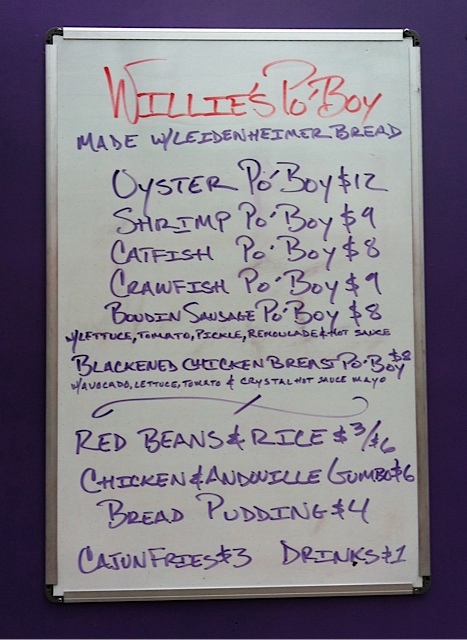 WILLIE'S PO'BOY
MADE W/LEIDENHEIMER BREAD
OYSTER PO'BOY $12
SHRIMP PO'BOY $9
CATFISH PO'BOY $8
CRAWFISH PO'BOY $9
BOUDIN SAUSAGE PO'BOY $8
W/LETTUCE, TOMATO, PICKLE, REMOULADE & HOT SAUCE
BLACKENED CHICKEN BREAST PO'BOY $8
W/AVOCADO, LETTUCE, TOMATO & CRYSTAL HOT SAUCE MAYO
RED BEANS & RICE $3/$6
CHICKEN & ANDOUILLE GUMBO $6
BREAD PUDDING $4
CAJUN FRIES $3 DRINKS $1